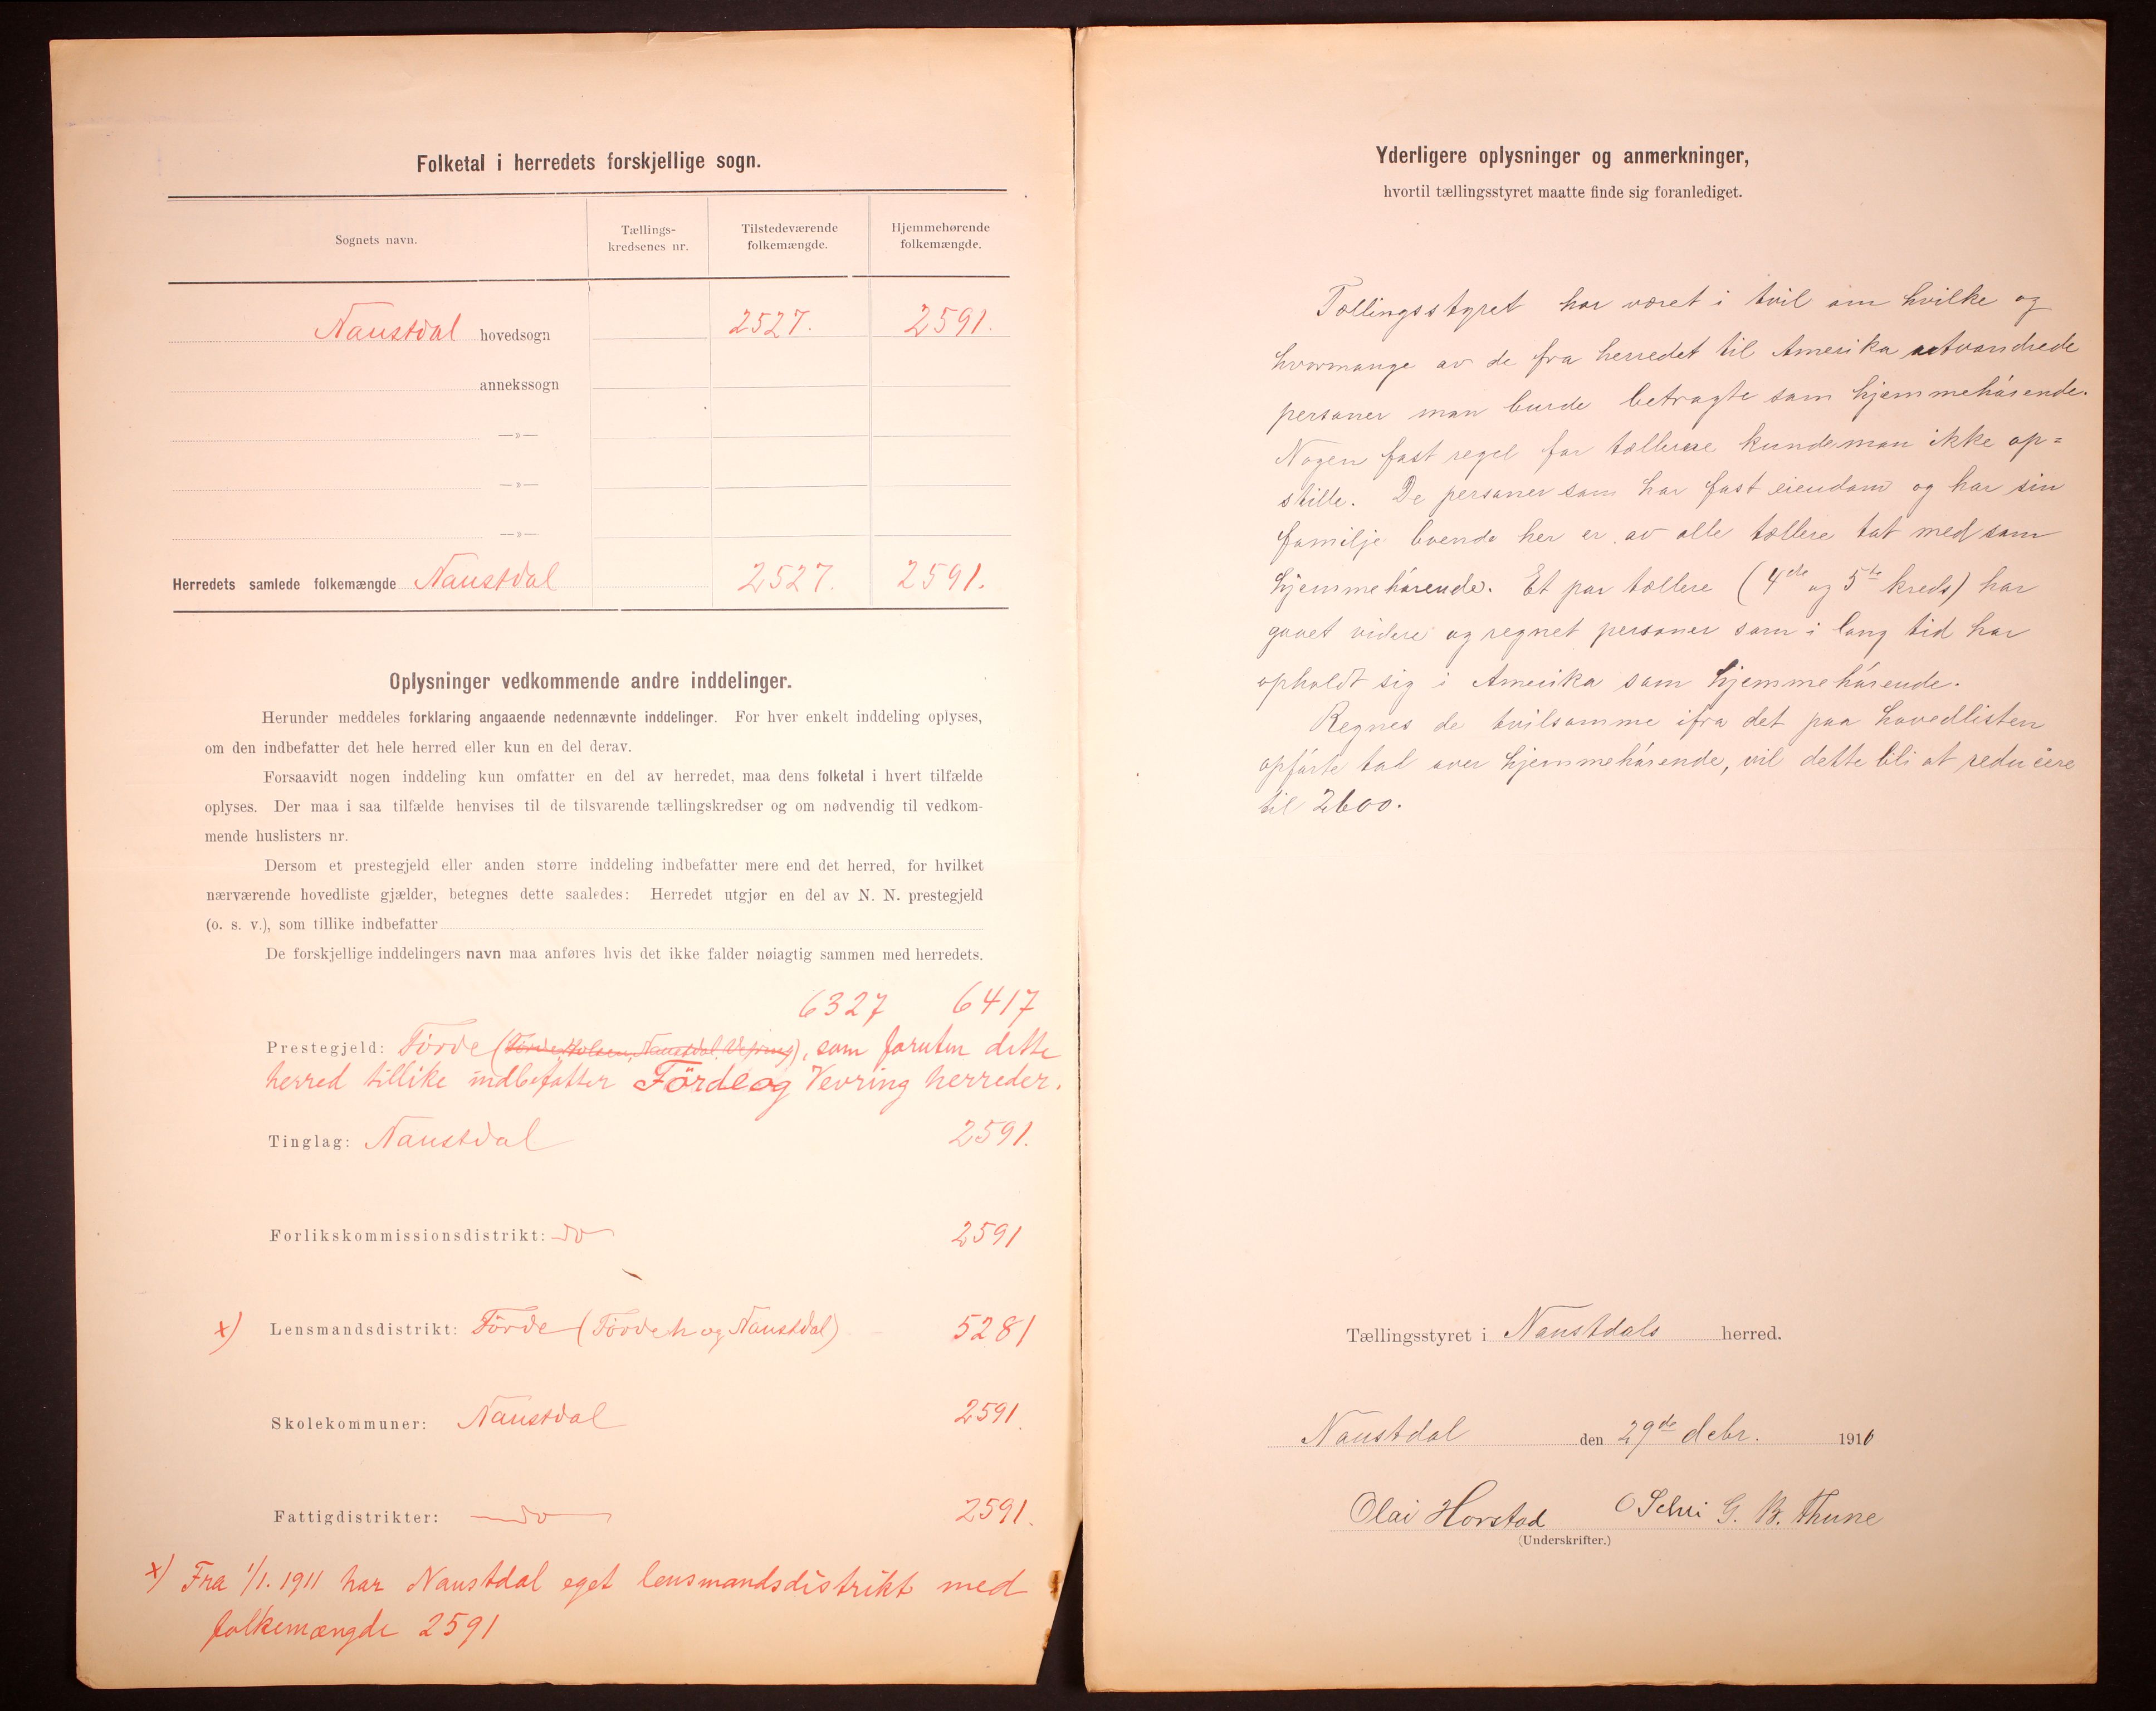 Folketal i herredets forskjellige sogn.
Sognets navn.
Tællings-
kredsenes nr.
Tilstedeværende
folkemængde.
Hjemmehørende
folkemængde.
Naustdal hovedsogn 2527. 2591.
annekssogn
—»—
—»—
—»—
Herredets samlede folkemængde Naustdal 2527. 2591.
Oplysninger vedkommende andre inddelinger.
Herunder meddeles forklaring angaaende nedennævnte inddelinger. For hver enkelt inddeling oplyses,
om den indbefatter det hele herred eller kun en del derav.
Forsaavidt nogen inddeling kun omfatter en del av herredet, maa dens folketal i hvert tilfælde
oplyses. Der maa i saa tilfælde henvises til de tilsvarende tællingskredser og om nødvendig til vedkom-
mende huslisters nr.
Dersom et prestegjeld eller anden større inddeling indbefatter mere end det herred, for hvilket
nærværende hovedliste gjælder, betegnes dette saaledes: Herredet utgjør en del av N. N. prestegjeld
(o. s. v.), som tillike indbefatter
De forskjellige inddelingers navn maa anføres hvis det ikke falder nøiagtig sammen med herredets.
6327 6417
Prestegjeld: Förde (Förde, Holsen, Naustdal, Vefring), som foruten dette
herred tillike indbefatter Förde og Vevring herreder.
Tinglag: Naustdal 2591.
Forlikskommissionsdistrikt: do 2591
x) Lensmandsdistrikt: Förde (Förde h og Naustdal) 5281
Skolekommuner: Naustdal 2591.
Fattigdistrikter: do 2591.
x) Fra 1/1. 1911 har Naustdal eget lensmandsdistrikt med
folkemængde 2591
Yderligere oplysninger og anmerkninger,
hvortil tællingsstyret maatte finde sig foranlediget.
Tællingsstyret har været i tvil om hvilke og
hvormange av de fra herredet til Amerika utvandrede
personer man burde betragte som hjemmehörende.
Nogen fast regel for tællerne kunde man ikke op=
stille. De personer som har fast eiendom og har sin
familje boende her er av alle tællere tat med som
hjemmehörende. Et par tællere (4de og 5te kreds) har
gaaet videre og regnet personer som i lang tid har
opholdt sig i Amerika som hjemmehörende.
Regnes de tvilsomme ifra det paa hovedlisten
opförte tal over hjemmehörende, vil dette bli at reducere
til 2600.
Tællingsstyret i Naustdals herred.
Naustdal den 29de debr. 1910
Olai Horstad O Selvi G. B. Thune
(Underskrifter.)